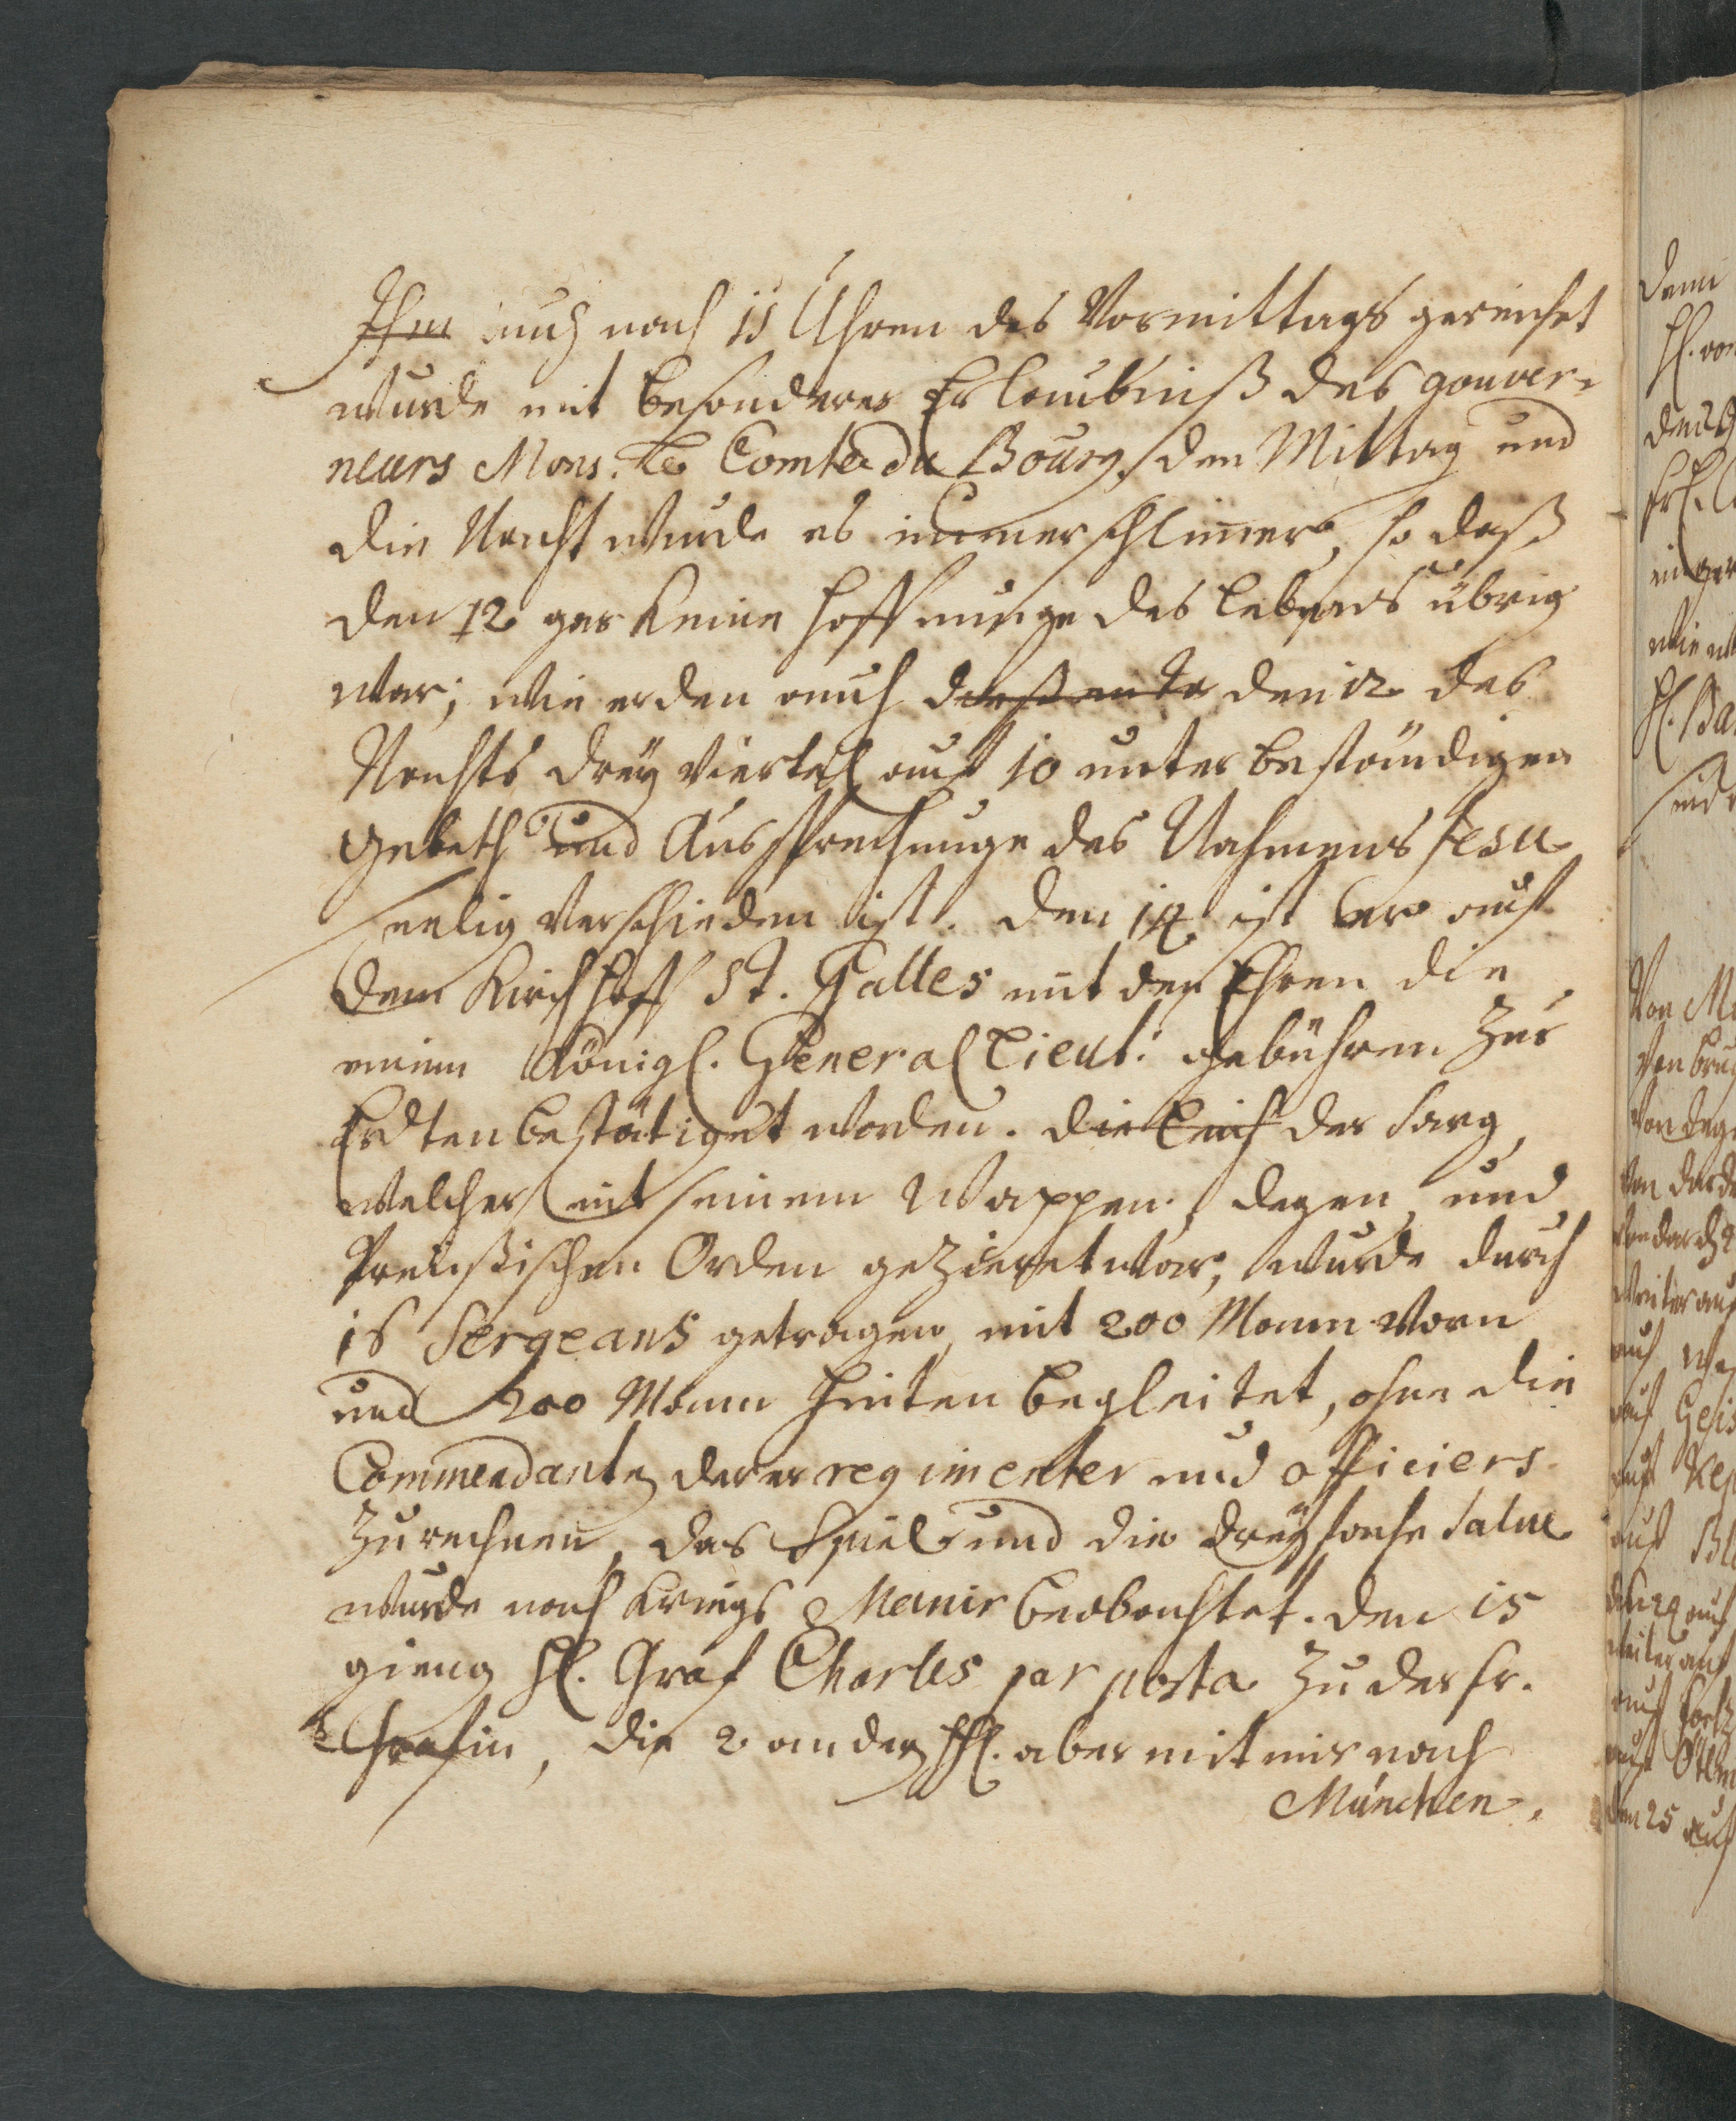 Ihm auch nach 11 Uhren des Vormittags gereichet
wurde mit besonderer Erlaubniß des gouver-
neurs Mons. le Comte du Bourg. den Mittag und
die Nacht wurde es immer schlimmer, so daß
den 12 gar keine Hoffnunge des Lebens übrig
war; wie er den auch den 12 des
Nachts drey Viertel auf 10 unter beständigen
Gebeth und Aussprechunge des Nahmens Jesu
seelig verschieden ist. den 14 ist er auf
dem Kirchhoff St. Galles mit den Ehren die
einem Königl. General Lieut: gebühren zur
Erdten bestätiget worden. die Leich der Sarg,
welcher mit seinem Wappen, degen, und
Preußischen Orden gezieret war, wurde durch
16 Sergeans getragen, mit 200 Mann vorn
und 200 Mann hinten begleitet, ohne die
Commendanten derer regimenter und officiers
zu rechnen, das Spiel und die dreyfache Salve
wurde nach Kriegs Manir beobachtet. den 15
gieng H. Graf Charles par posta zu der Fr.
Gräfin, die 2 andern HH. aber mit mir nach
München.